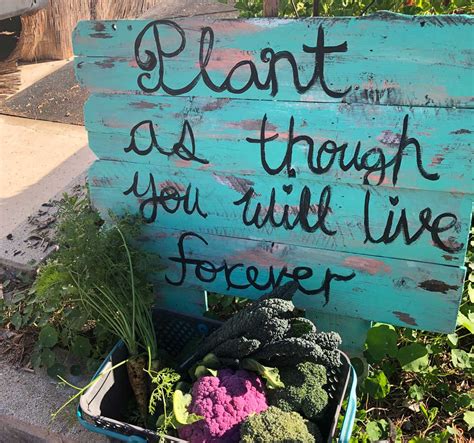 Plant
as though
you will live
forever